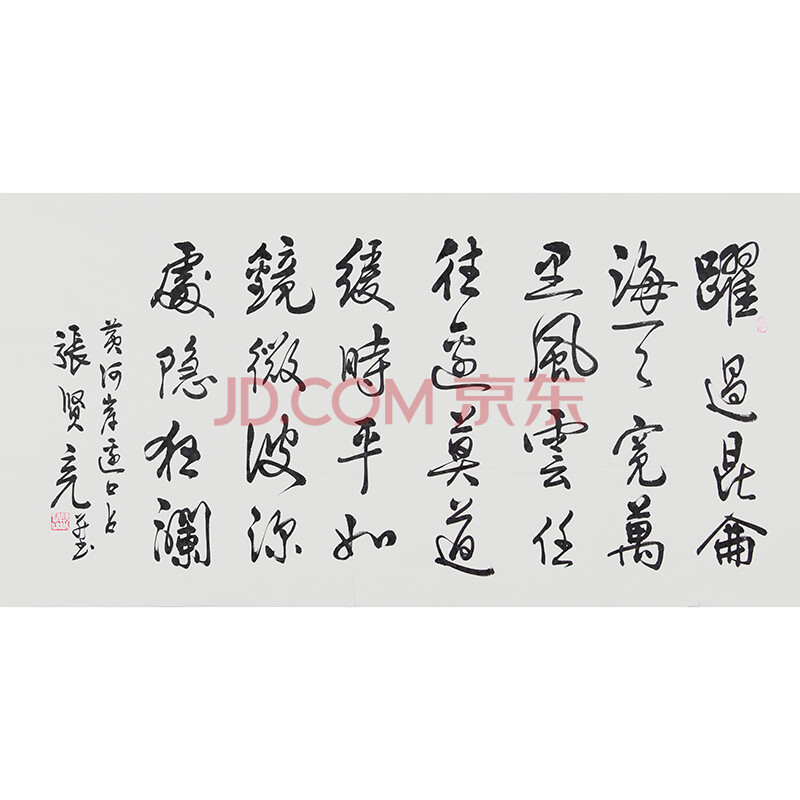 躍過昆侖
海天寬萬
里風雲任
往還莫道
緩時平如
鏡微波深
處隐狂瀾
黃河岸邊口占
張賢亮并書
JD.COM 京东